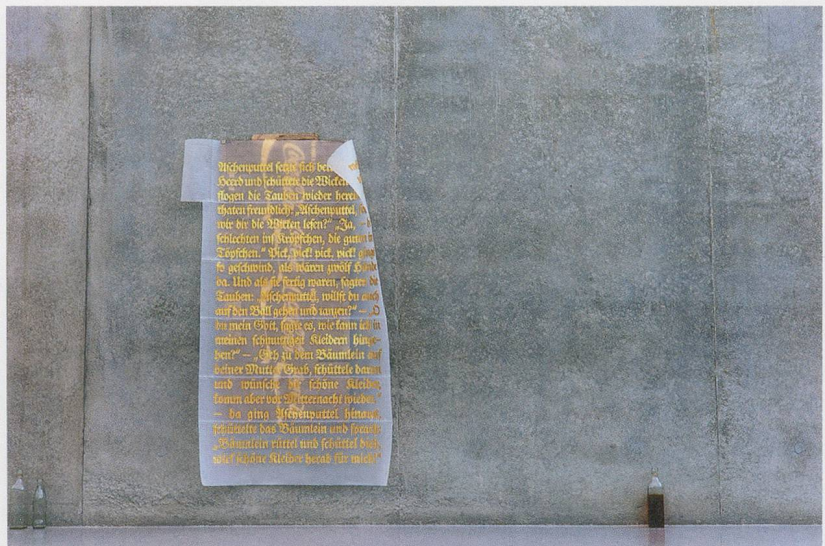 Aschenputtel setzte sich
Heerd und schüttete die Wicken
flogen die Tauben wieder
thaten freundlich: „Aschenputtel,
wir dir die Wicken lesen?“ „Ja,
schlechten ins Kröpfchen, die guten
Töpfchen.“ Pick, pick! pick, pick!
so geschwind, als wären zwölf
da. Und als sie fertig waren, sagten
Tauben: Aschenputtel, willst du auch
auf den Ball gehen und tanzen?“ — „O
du mein Gott, sagte es, wie kann ich in
meinen schmutzigen Kleidern hinge-
hen?“ — „Geh zu dem Bäumlein auf
deiner Mutter Grab, schüttele daran
und wünsche dir schöne Kleider,
komm aber vor Mitternacht wieder.“
— da ging Aschenputtel hinaus,
schüttelte das Bäumlein und sprach:
„Bäumlein rüttel und schüttel dich,
wirf schöne Kleider herab für mich!“